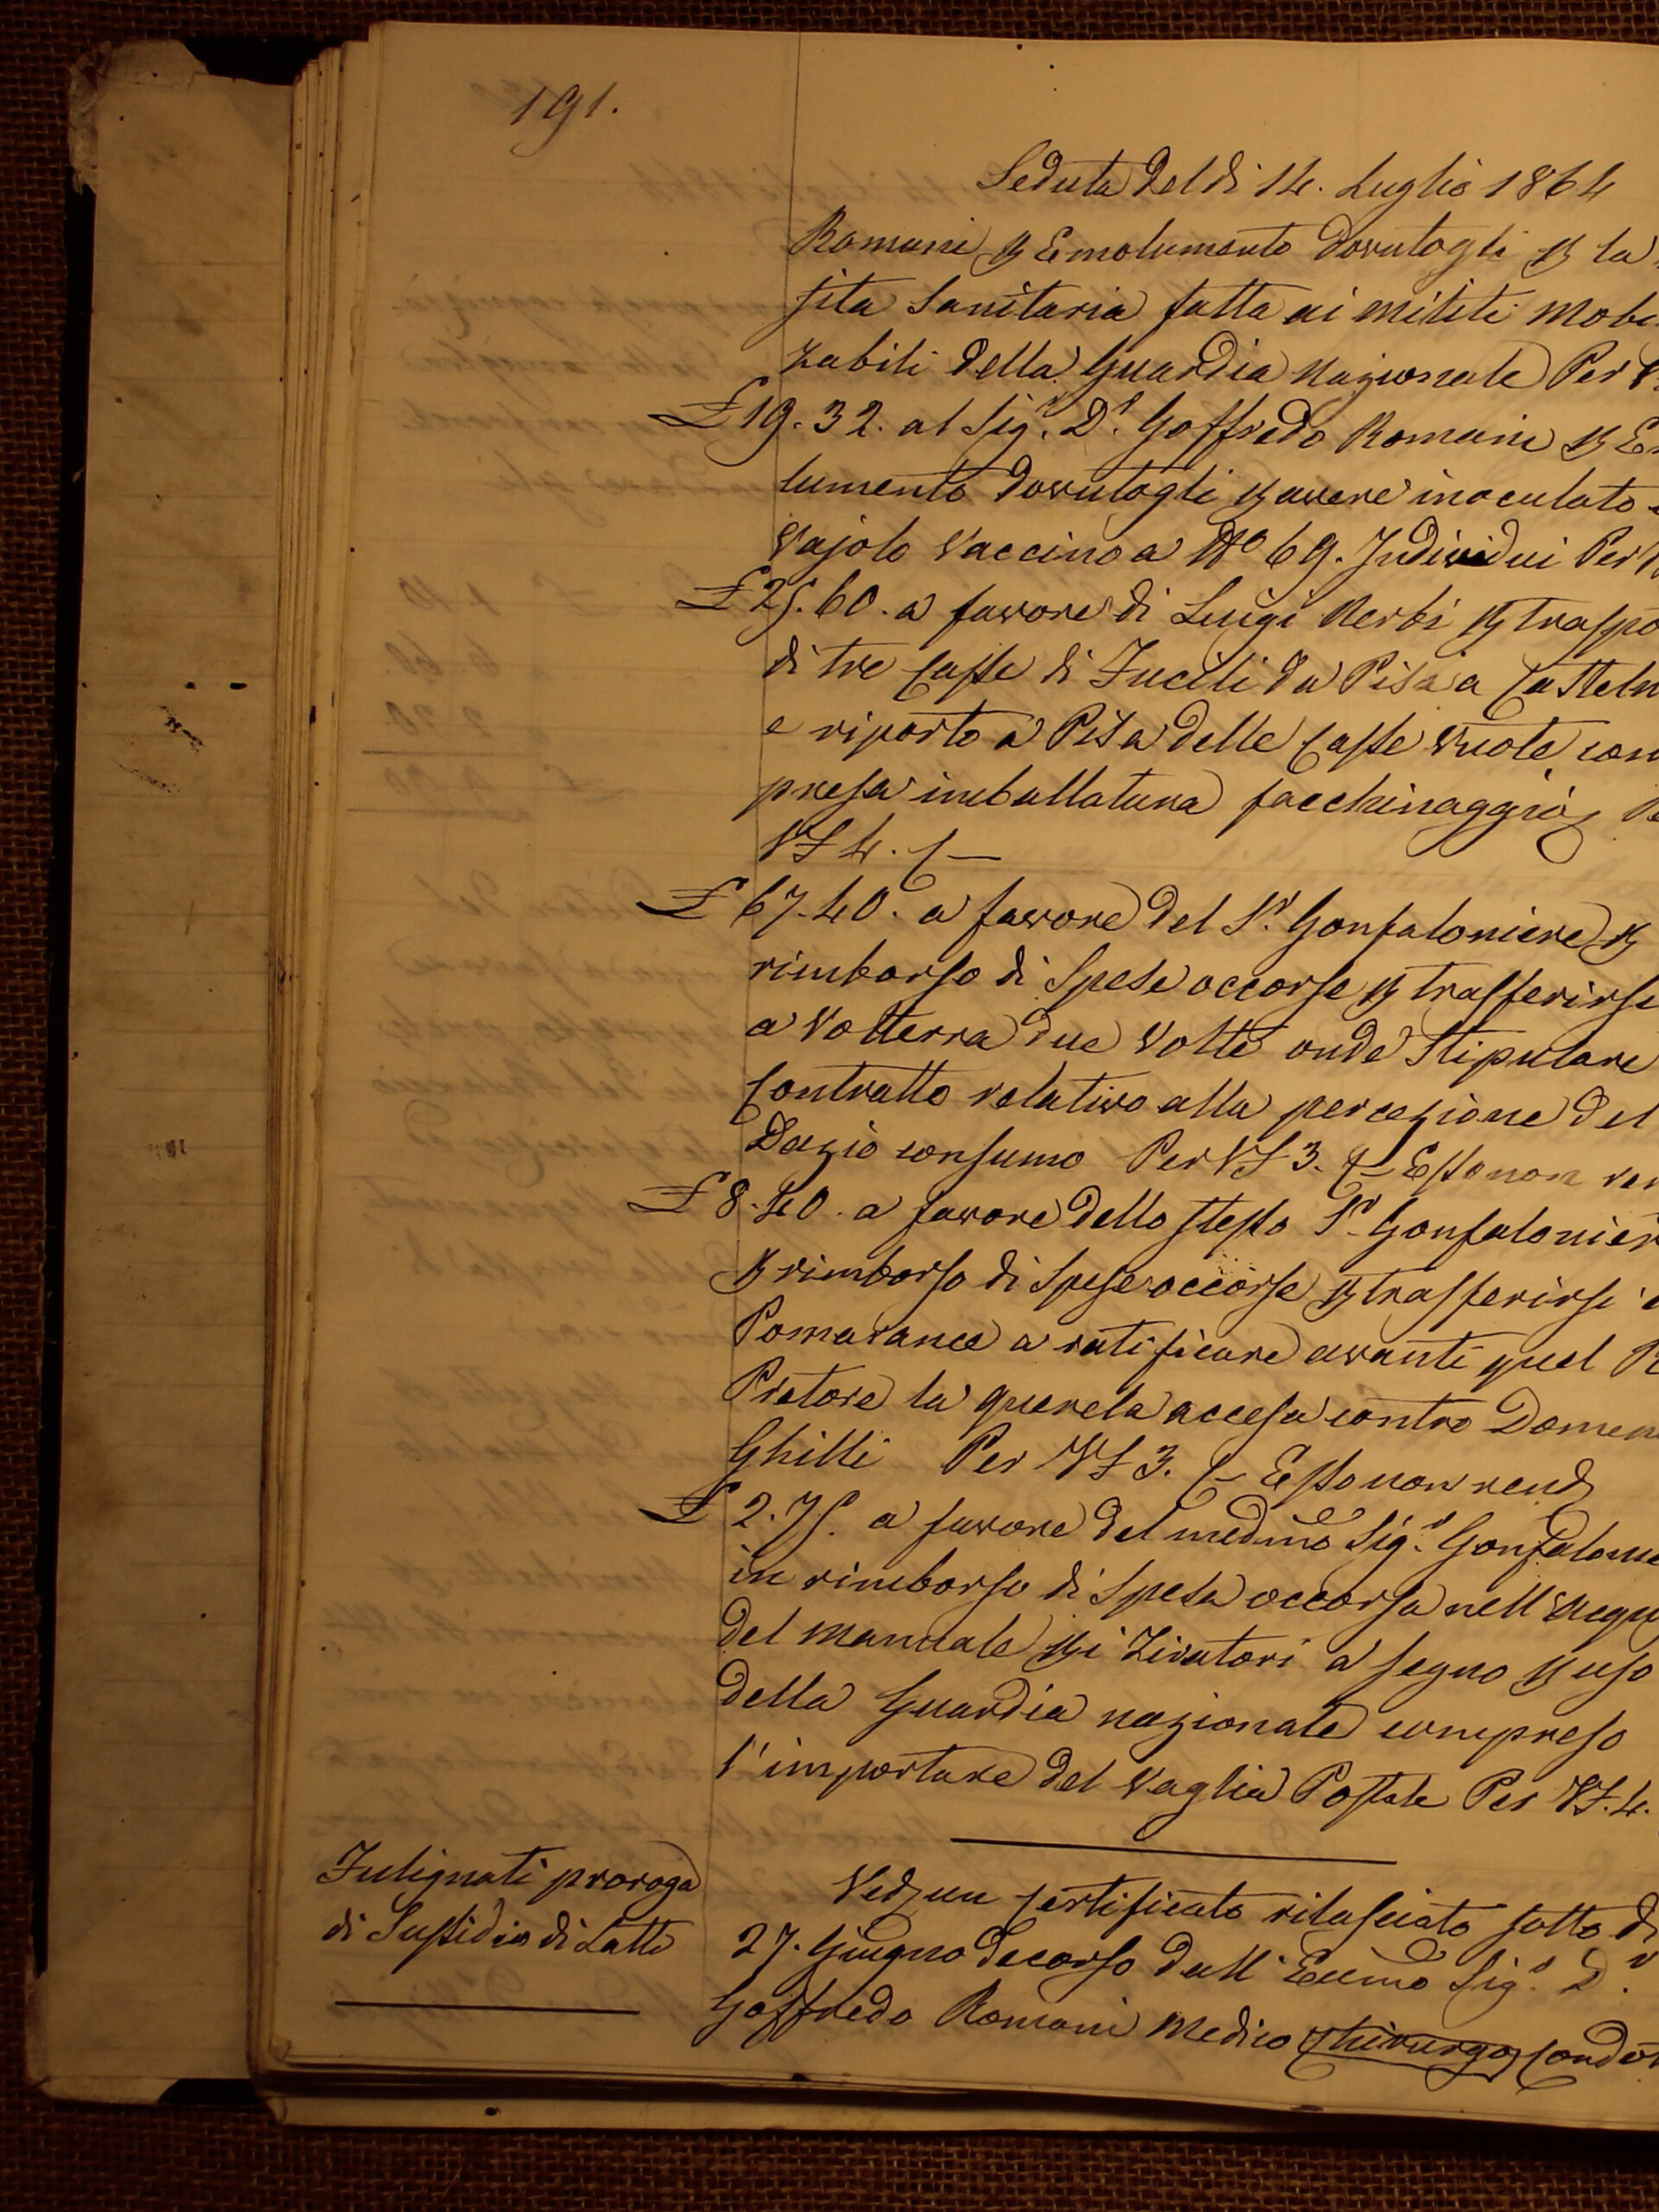 191.
Seduta del dì 14. Luglio 1864
Romani p Emolumento dovutogli p la
sita Sanitaria fatta ai militi mobi
zabili della Guardia Nazionale Per V.
£ 19.32. al Sig.r D.r Goffredo Romani p E
lumento dovutogli p avere inoculato
Vajolo Vaccino a No 69. Individui Per
£ 25.60. a favore di Luigi Nerbi p traspo
di tre Casse di Fucili da Pisa a Casteln
e riporto a Pisa delle Casse Vuote com
presa imballatura facchinaggio
VF 4.
£ 67.40. a favore del S.r Gonfaloniere p
rimborso di Spese occorse p trasferirsi
a Volterra due Volte onde Stipulare
Contratto relativo alla percezione del
Dazio consumo Per VF 3. Esso non ren
£ 8.40. a favore dello stesso S.r Gonfalonier
p rimborso di Spese occorse p trasferirsi a
Pomarance a ratificare avanti quel R
Pretore la querela accesa contro Domen
Ghilli Per VF 3. Esso non rend
£ 2.75. a favore del medmo Sig.r Gonfalonie
in rimborso di Spesa occorsa nell'acqu
del manuale pi Tiratori a segno p uso
della Guardia nazionale compreso
l'importare del Vaglia Postale Per VF. 4.
Fulignati proroga
di Sussidio di Latte
Ved un Certificato rilasciato sotto dì
27. Giugno decorso dall'Eccmo Sig.r D.r
Goffredo Romani Medico Chirurgo Condot